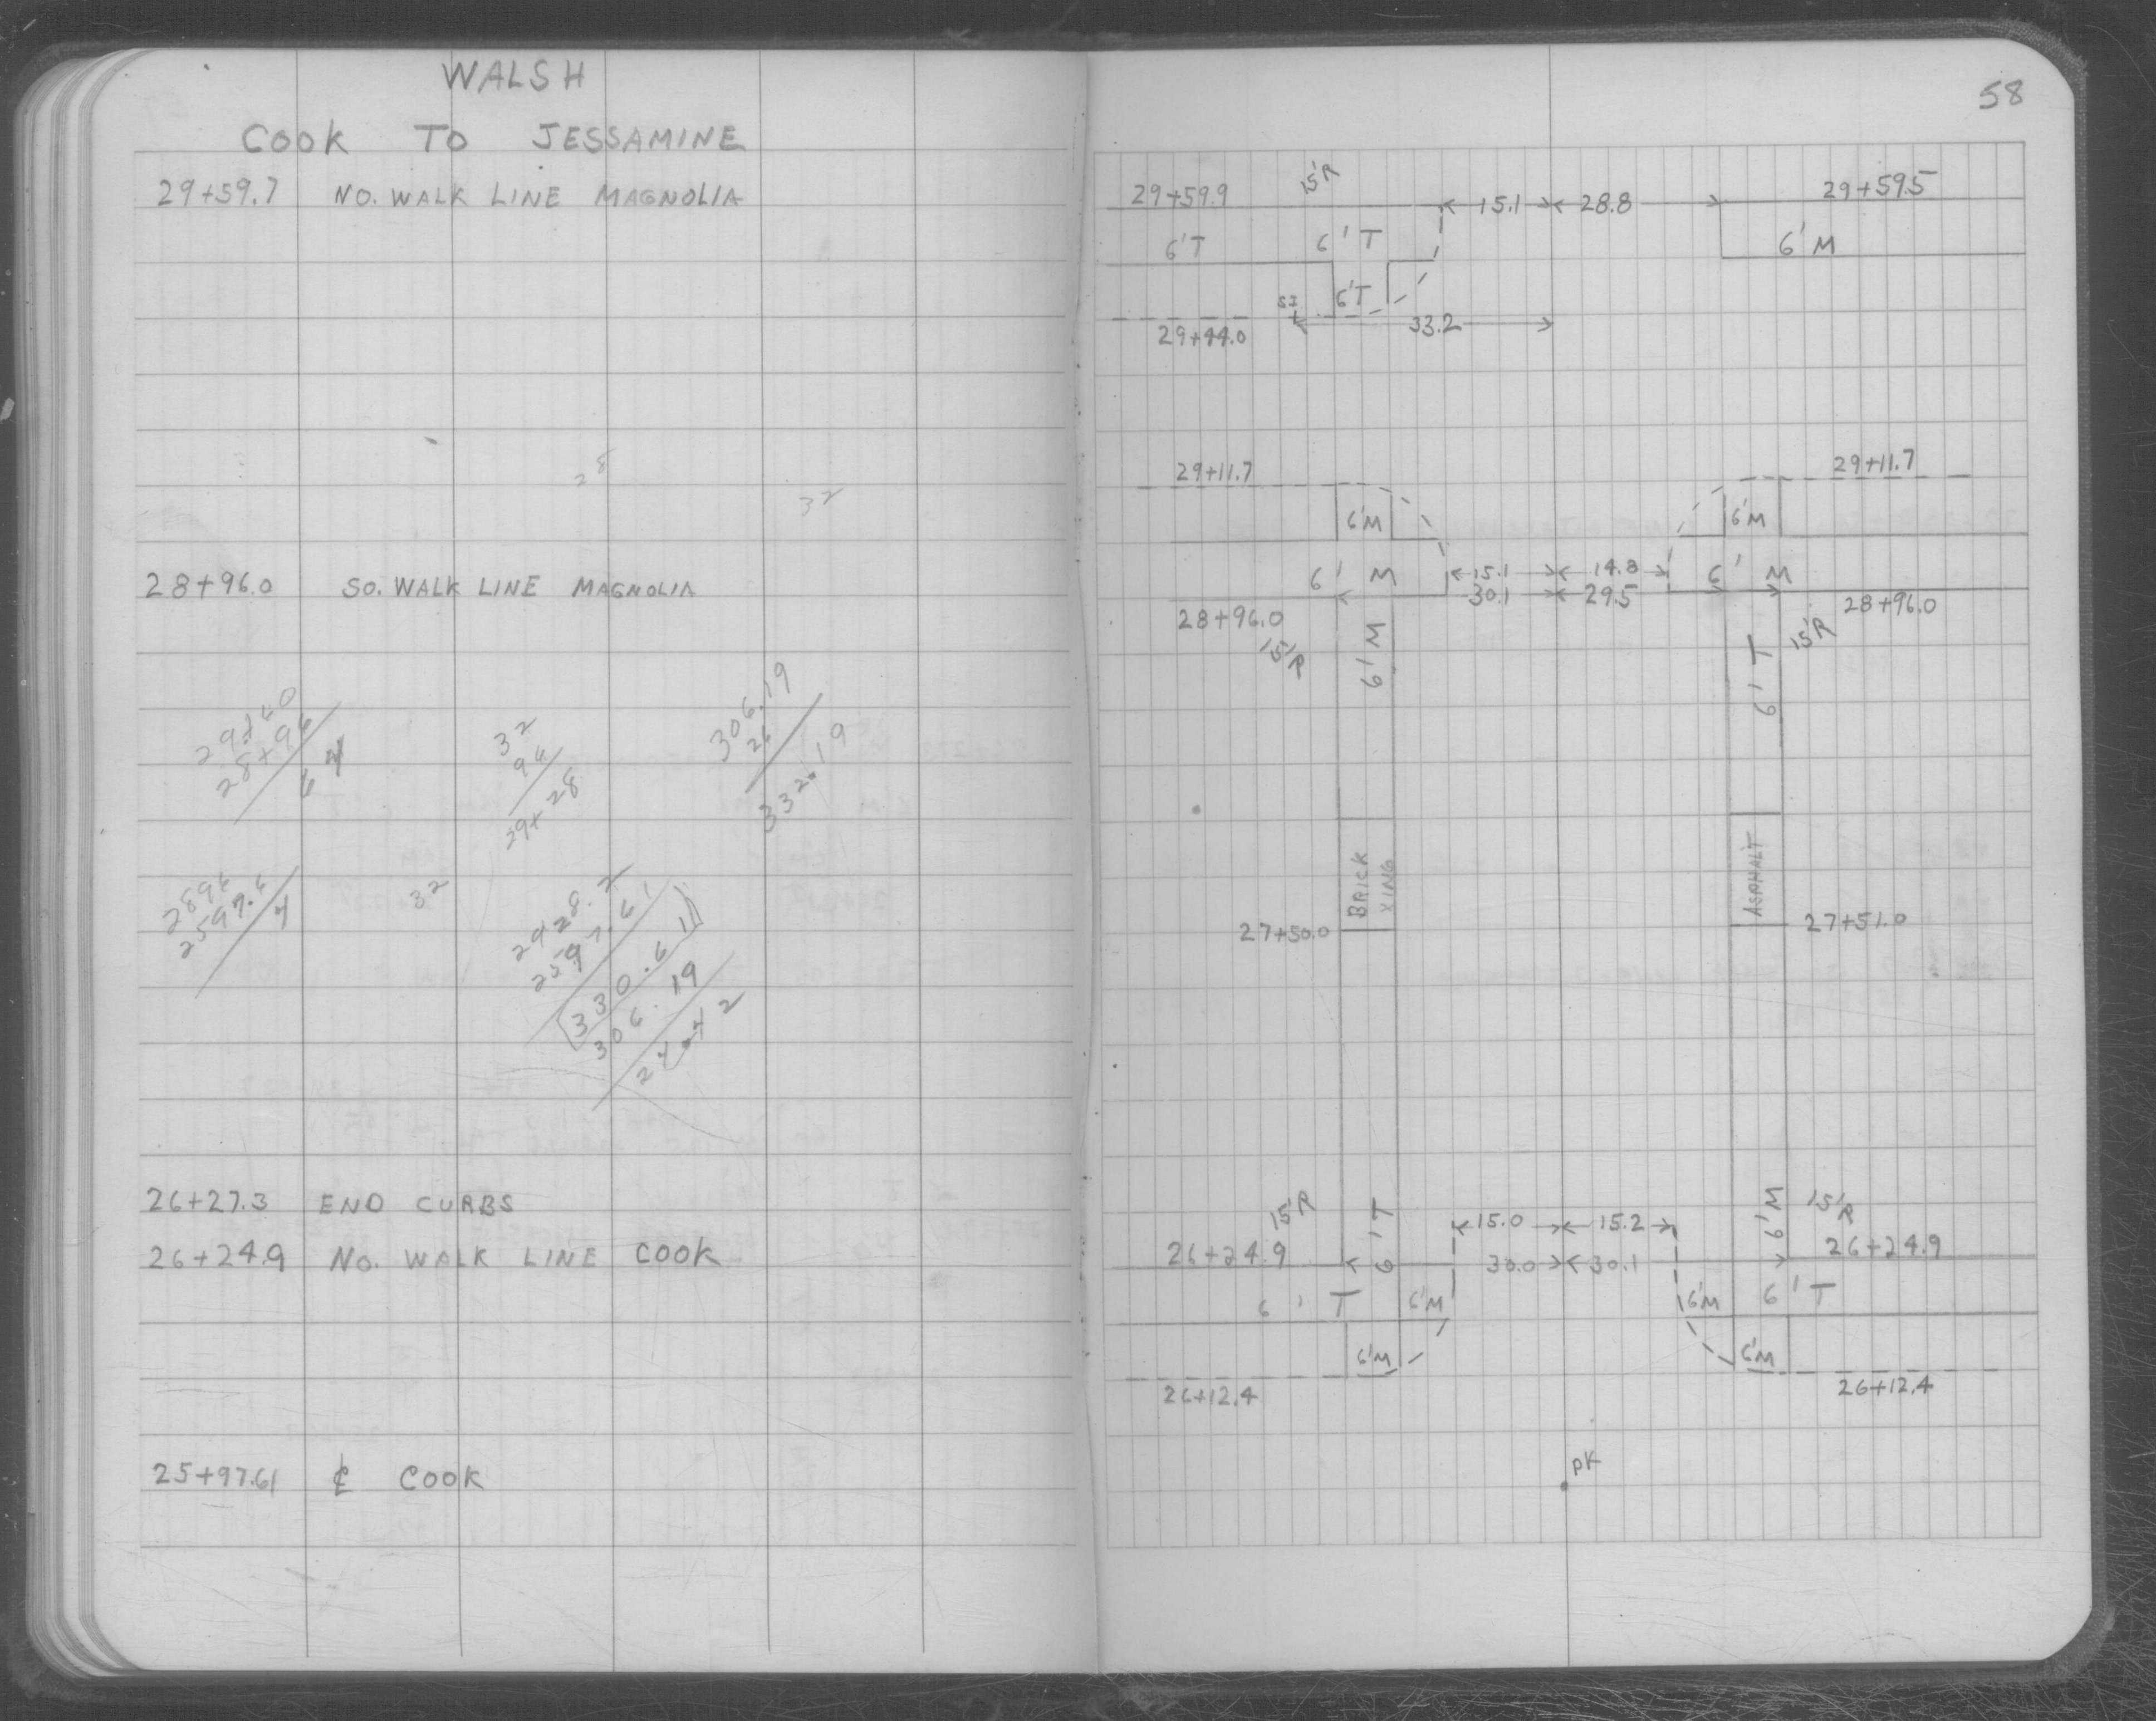 WALSH
COOK TO JESSAMINE
29+59.7 NO. WALK LINE MAGNOLIA
28
32
28+96.0 SO. WALK LINE MAGNOLIA
28+96
32
29+28
306.19
26
332.19
32
2597.61
330.61
306.19
26+27.3 END CURBS
26+24.9 NO. WALK LINE COOK
25+97.61 ℄ COOK
58
29+59.9 15'R 15.1 28.8 29+59.5
6'T 6'T 6'M
6'T
29+44.0 33.2
29+11.7 29+11.7
6'M 6'M
6'M 15.1 14.8 6'M
30.1 29.5
28+96.0 28+96.0
15'R 6'M 6'T 15'R
BRICK XING ASPHALT
27+50.0 27+51.0
15'R 6'T 15.0 15.2 6'M 15'R
26+24.9 30.0 30.1 26+24.9
6'T 6'M 6'M 6'T
6'M 6'M
26+12.4 26+12.4
PK